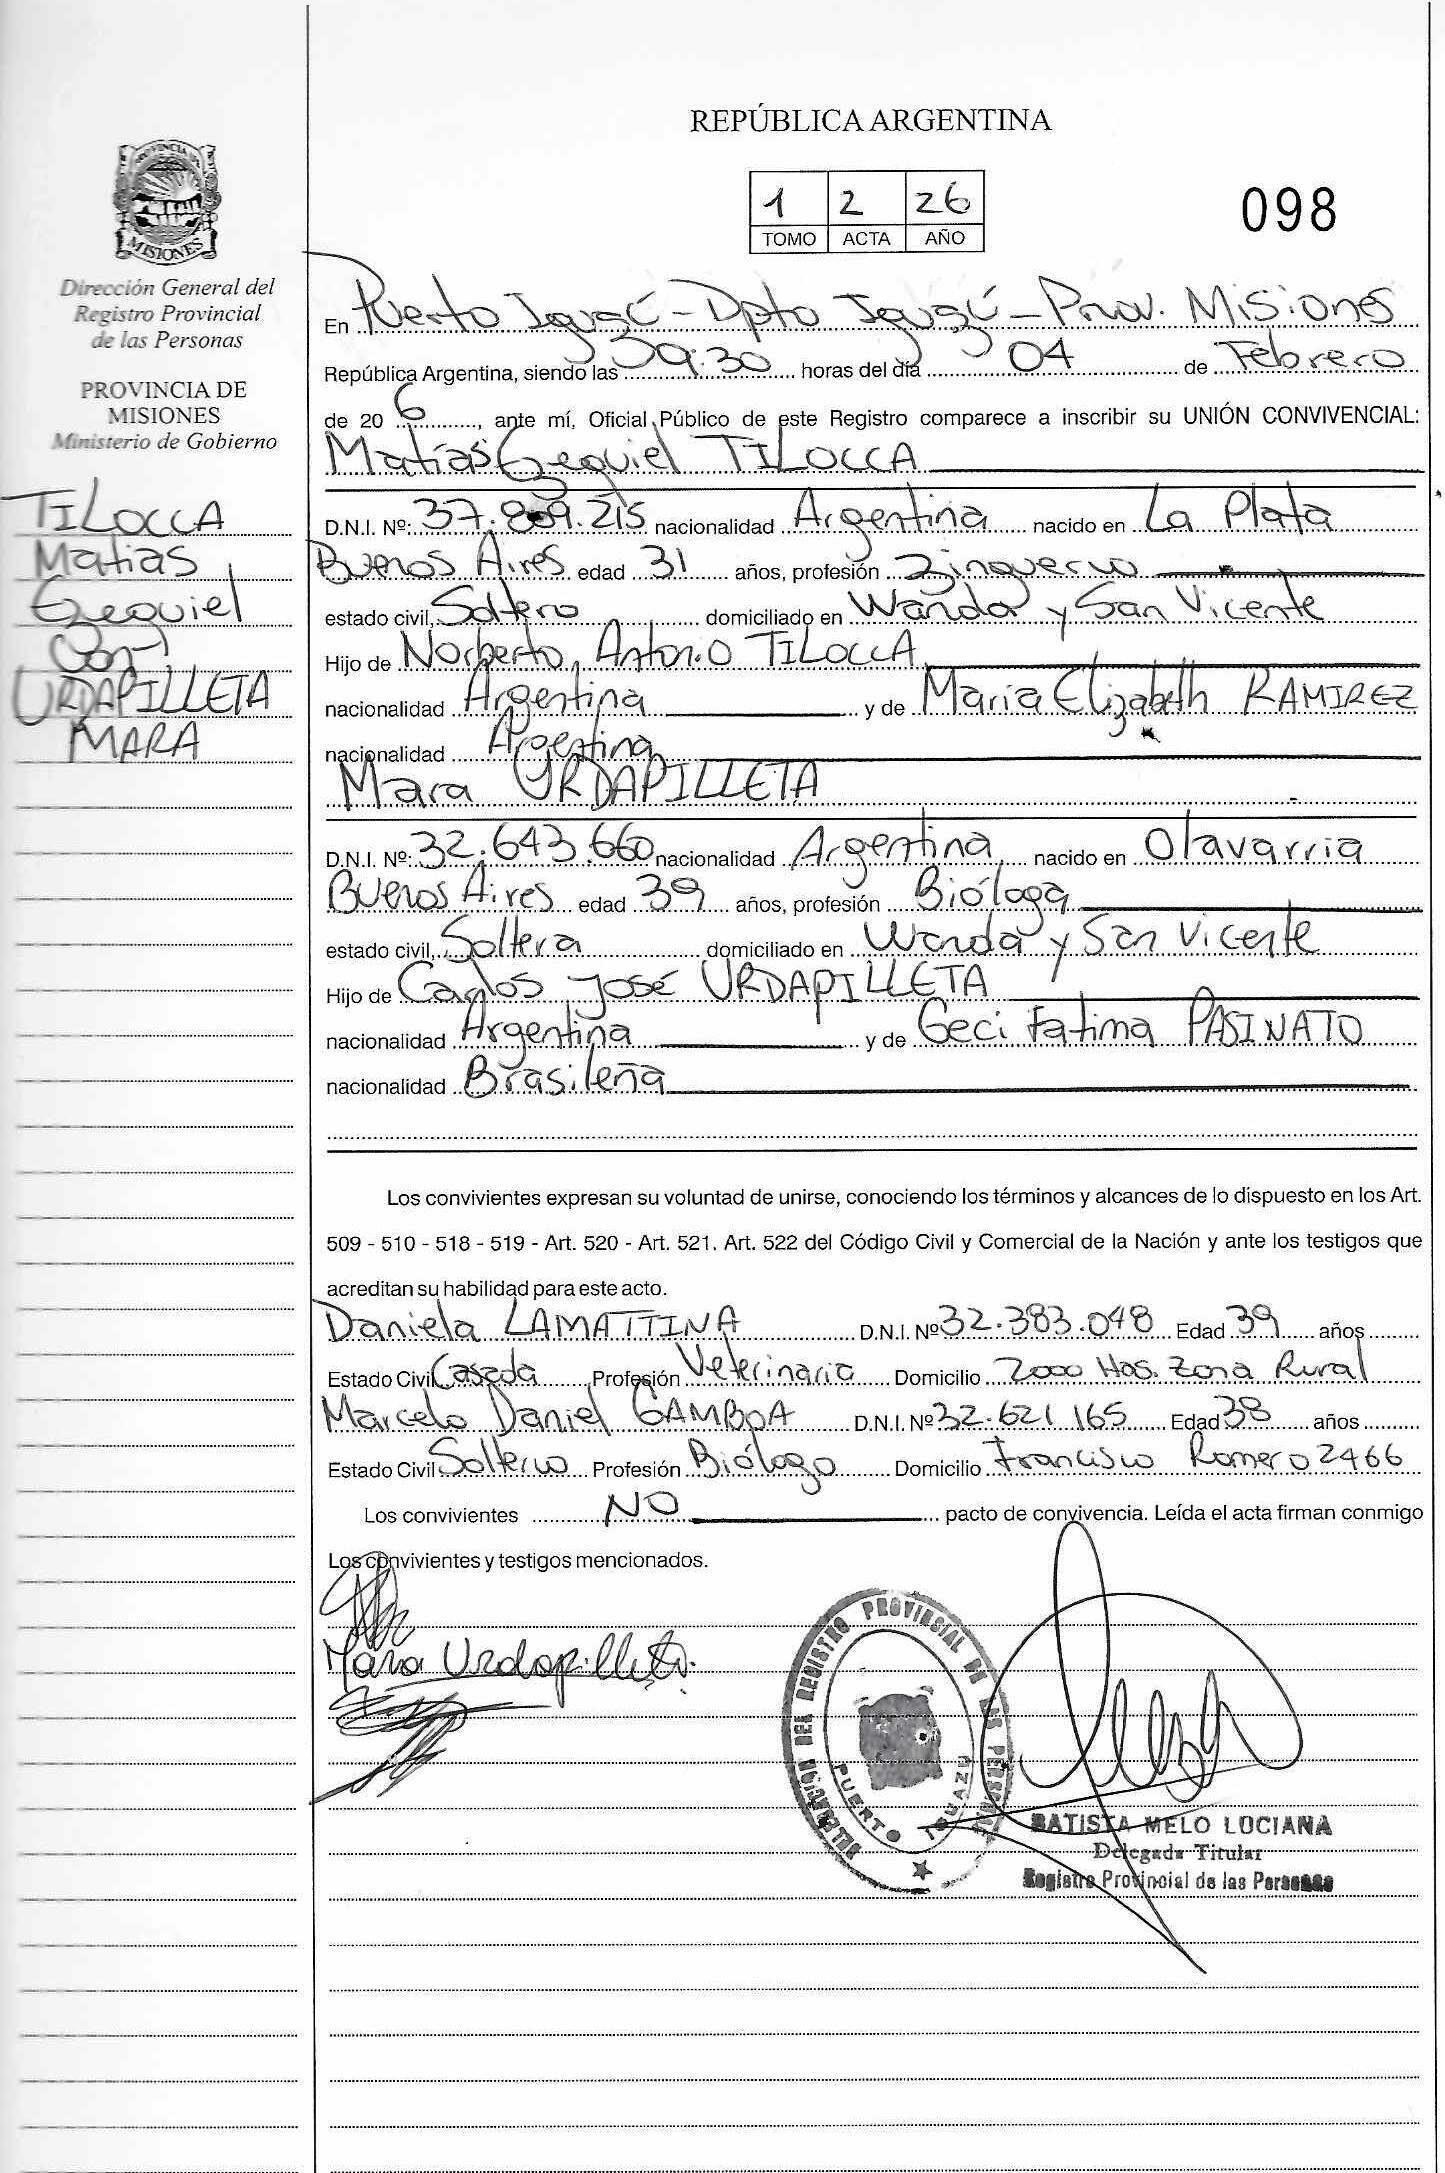 REPÚBLICA ARGENTINA
1 2 26
TOMO ACTA AÑO
098
PROVINCIA DE
MISIONES
Dirección General del
Registro Provincial
de las Personas
PROVINCIA DE
MISIONES
Ministerio de Gobierno
TILOCCA
Matias
Ezequiel
Con
URDAPILLETA
MARA
En Puerto Iguazú - Dpto Iguazú - Prov. Misiones
República Argentina, siendo las 09:30 horas del día 04 de Febrero
de 20 6, ante mí, Oficial Público de este Registro comparece a inscribir su UNIÓN CONVIVENCIAL:
Matías Ezequiel TILOCCA
D.N.I. Nº: 37.809.215 nacionalidad Argentina nacido en La Plata
Buenos Aires edad 31 años, profesión Zinguero
estado civil, Soltero domiciliado en Wanda y San Vicente
Hijo de Norberto Antonio TILOCCA
nacionalidad Argentina y de María Elizabeth RAMIREZ
nacionalidad Argentina
Mara URDAPILLETA
D.N.I. Nº: 32.643.660 nacionalidad Argentina nacido en Olavarria
Buenos Aires edad 39 años, profesión Bióloga
estado civil, Soltera domiciliado en Wanda y San Vicente
Hijo de Carlos José URDAPILLETA
nacionalidad Argentina y de Geci Fatima PASINATO
nacionalidad Brasileña
Los convivientes expresan su voluntad de unirse, conociendo los términos y alcances de lo dispuesto en los Art.
509 - 510 - 518 - 519 - Art. 520 - Art. 521. Art. 522 del Código Civil y Comercial de la Nación y ante los testigos que
acreditan su habilidad para este acto.
Daniela LAMATTINA D.N.I. Nº 32.383.048 Edad 39 años
Estado Civil Casada Profesión Veterinaria Domicilio 2000 Has. Zona Rural
Marcelo Daniel GAMBOA D.N.I. Nº 32.621.165 Edad 38 años
Estado Civil Soltero Profesión Biólogo Domicilio Francisco Romero 2466
Los convivientes NO pacto de convivencia. Leída el acta firman conmigo
Los convivientes y testigos mencionados.
Mara Urdapilleta.
DELEGACIÓN DEL REGISTRO PROVINCIAL DE LAS PERSONAS
PUERTO IGUAZU
BATISTA MELO LUCIANA
Delegada Titular
Registro Provincial de las Personas